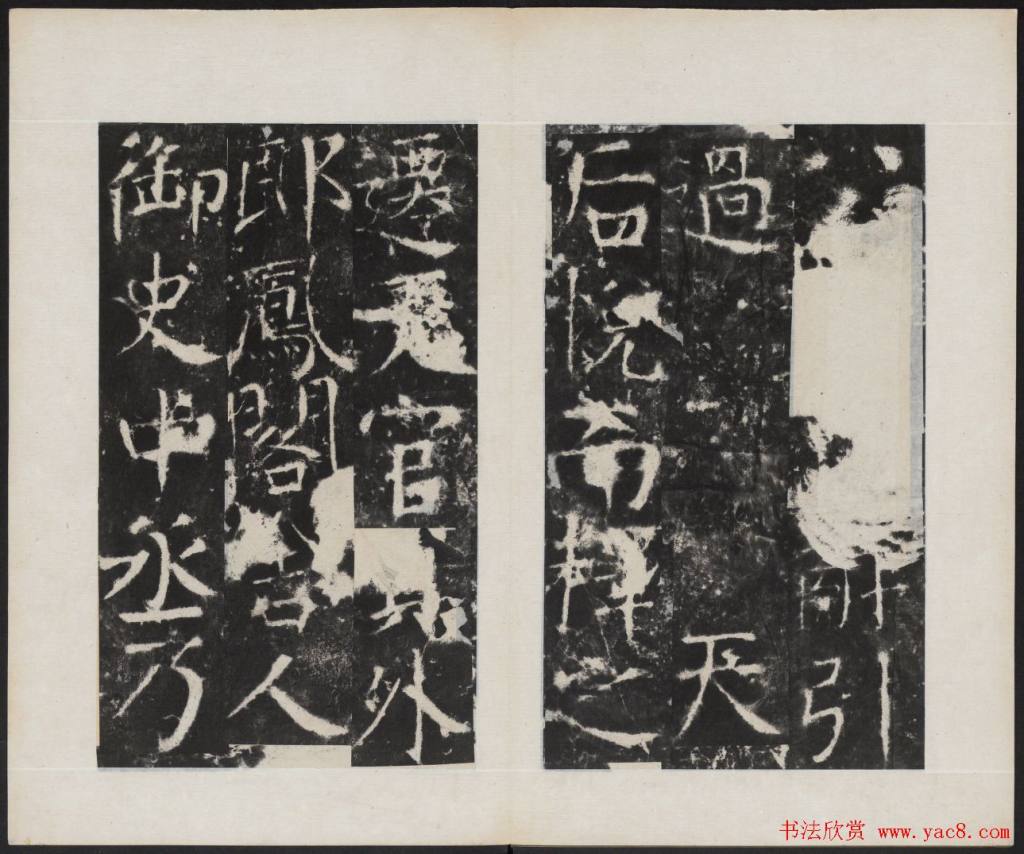 引
過 天
后悅而釋之
遷官員外
郎鳳閣舍人
御史中丞乃
书法欣赏 www.yac8.com